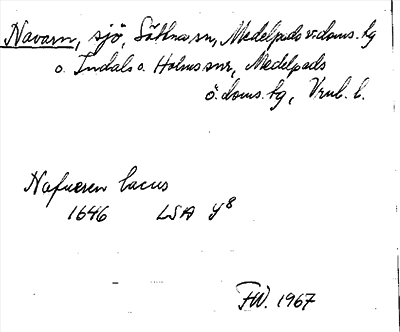 Navarn, sjö, Sättna sn, Medelpads v. doms. hg
o. Indals o. Holms snr, Medelpads
ö. doms. hg, Vnl. l.
Nafueren lacus
1646 LSA Y8
FW. 1967